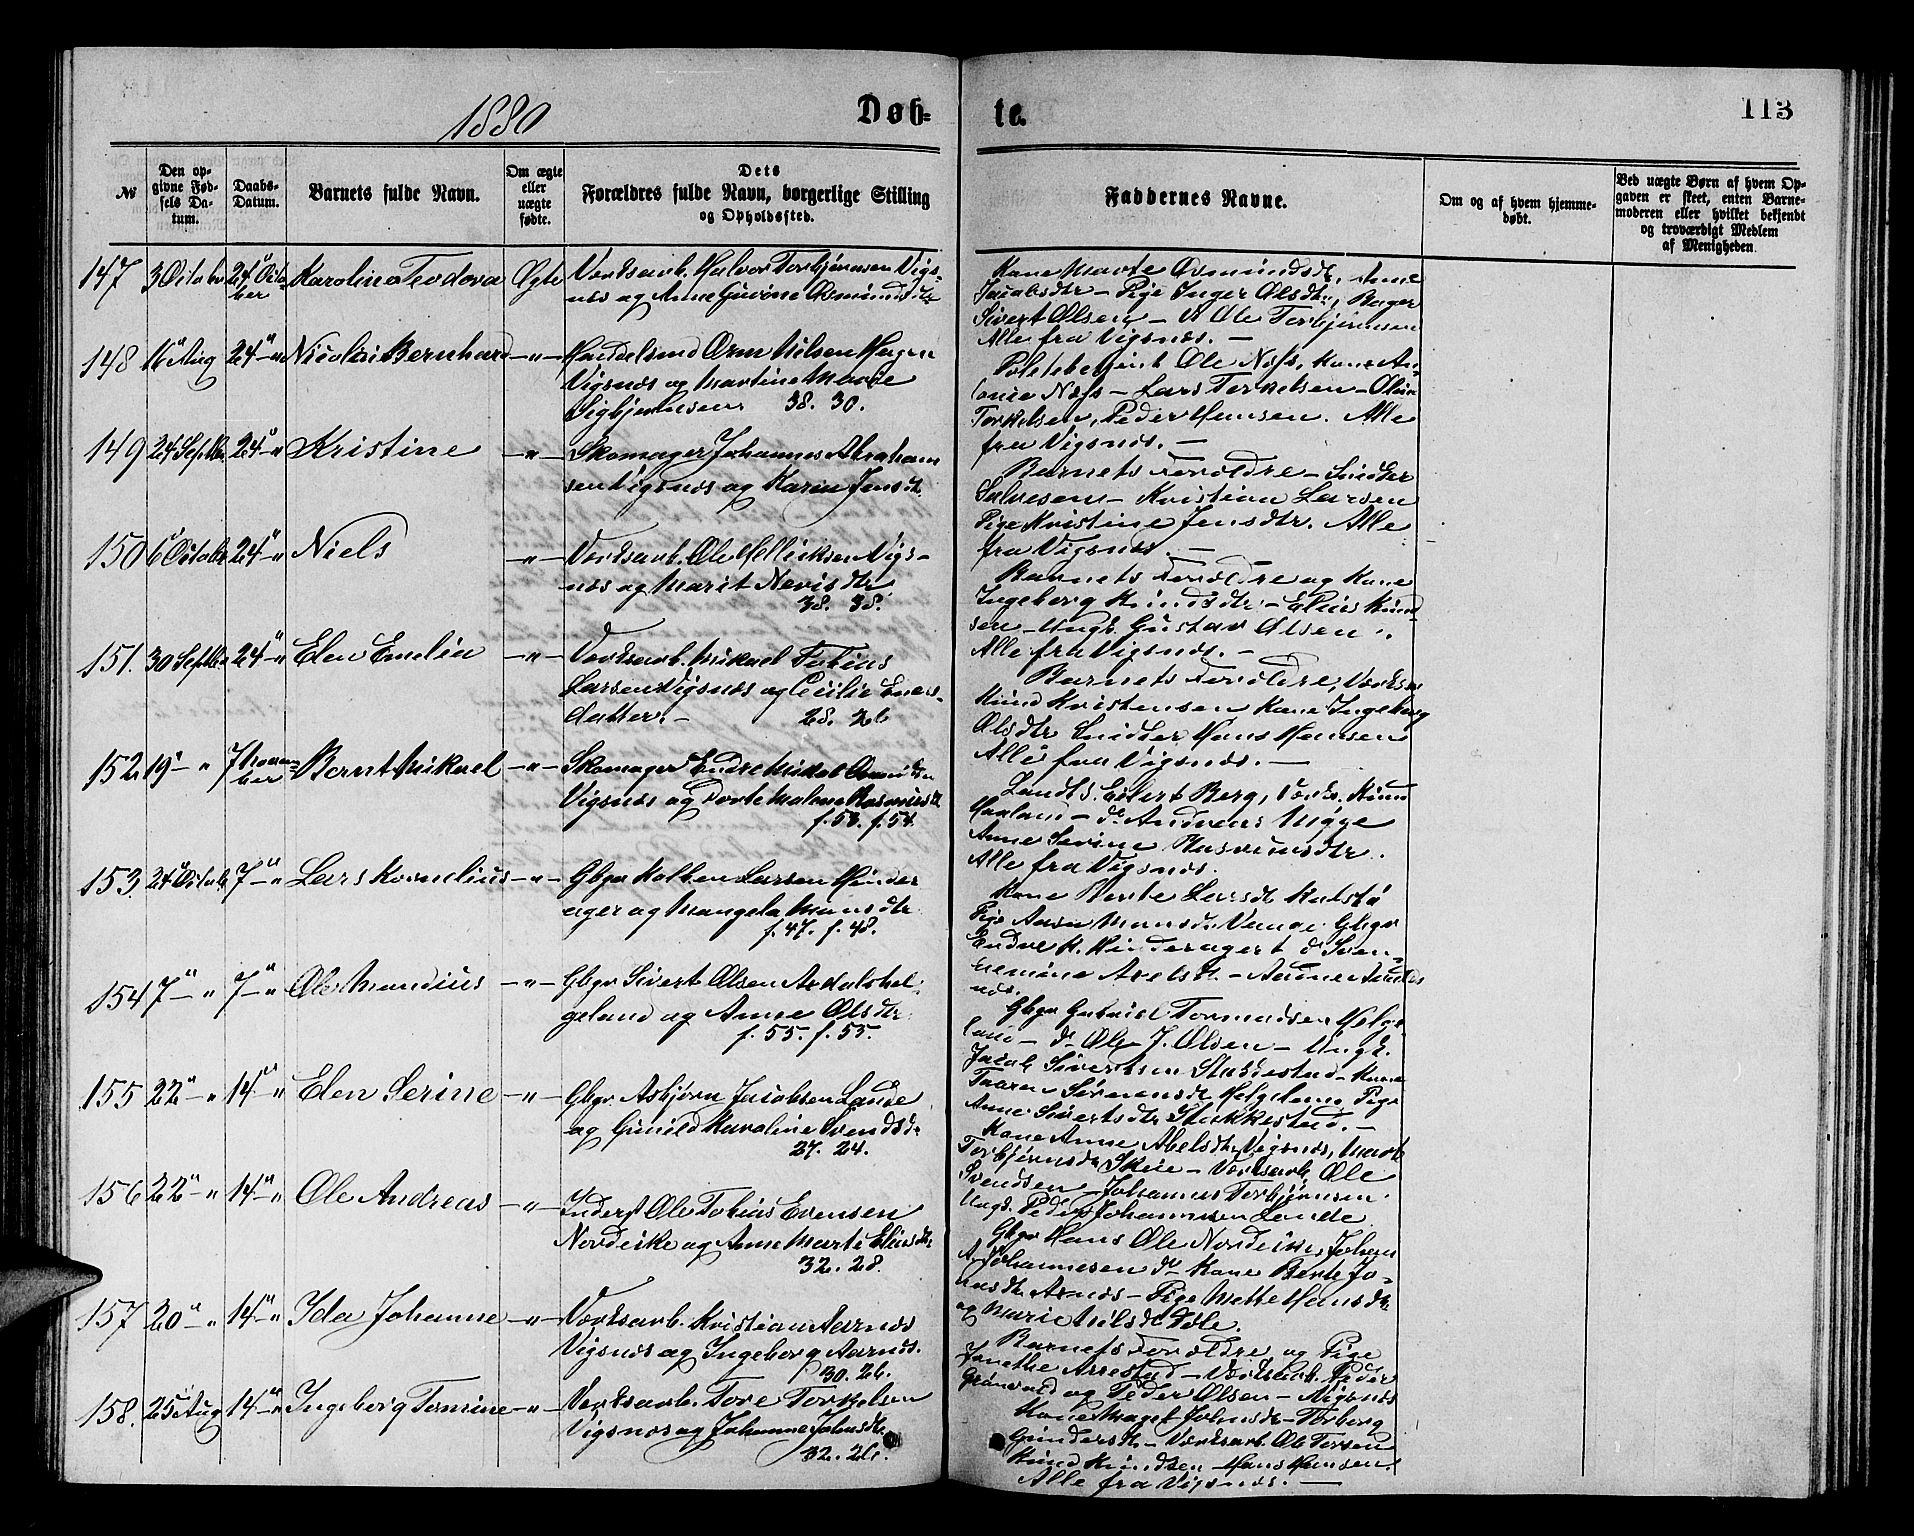 1880
Døb-
te.
113
№
Den op-
givne Fød-
sels Da-
tum.
Daabs-
Datum.
Barnets fulde Navn.
Om ægte
eller
uægte
fødte.
Dets
Forældres fulde Navn, borgerlige Stilling
og Opholdssted.
Faddernes Navne.
Om og af hvem hjemme-
døbt.
Ved uægte Børn af hvem Op-
gaven er skeet, enten Barne-
moderen eller hvilket bekjendt
og troværdigt Medlem
af Menigheden.
147 3 Octobr 24 Octo-
ber Karolina Teodora Ægte
Værksarb. Halvor Torbjørnsen Vigs-
næs og Anne Gurine Osmundsdtr
Kone Marte Osmundsdtr, Anne
Jacobsdtr – Pige Inger Olsdtr, Bager
Sivert Olsen – Ole Torbjørnsen
Alle fra Vigsnæs. –
148 16 Aug 24 – " Nicolai Bernhard – " –
Handelsmd Orm Nilsen Hagen
Vigsnæs og Martine Marie
Sigbjørnsen 38. 30.
Politibetjent Ole Næss, Kone An-
tonie Næss – Lars Torkelsen – Olium
Torkelsen, Peder Hansen. Alle
fra Vigsnæs. –
149 24 Septbr 24 – " Kristine – " –
Skomager Johannes Abraham
sen Vigsnæs og Karen Jensdtr
Barnets Forældre – Snidker
Salvesen – Kristian Larsen
Pige Kristine Jensdtr. Alle
fra Vigsnæs. –
150 6 Octobr 24 – " Niels – " –
Værksarb. Ole Velliksen Vigs-
næs og Marit Nerisdtr
38. 38.
Barnets Forældre og Kone
Ingeborg Knudsdtr – Elias Knud-
sen – Ungk. Gustav Olsen.
Alle fra Vigsnæs. –
151. 30 Septbr 24 – " Elen Emelia – " –
Værksarb. Mikael Tobias
Larsen Vigsnæs og Cecilie Eners-
datter. – 28. 26
Barnets Forældre, Værksar
Knud Kristensen Kone Ingeborg
Olsdtr Snidker Hans Hansen
Alle fra Vigsnæs. –
152 19 – " 7 Novem-
ber Bernt Mikael – " –
Skomager Endre Mikal Osmundsen
Vigsnæs og Dorte Malene Rasmusdtr
f. 53. f. 54.
Landh. Eilert Berg, Værks. Knud
Haaland – do Andreas Møge
Anne Serine Rasmusdtr.
Alle fra Vigsnæs.
153. 24 Octobr 7 – " Lars Kornelius – " –
Gbgr Kolben Larsen Hinder
ager og Mangela Monsdtr
f. 47. f. 48.
Kone Berte Larsdtr Kolstø
Pige Aasa Monsdtr Vaage Gbgr
Endre K. Hinderager do Sven
154 7 – " 7 – " Ole Mandius – " –
Gbgr Sivert Olsen Ardalshel
geland og Anne Olsdtr
f. 55. f. 55.
Gbgr Gabriel Tormodsen Helge
land – do Ole J. Olsen – Ungk.
Jacob Sivertsen Stakkestad – Kone
Taaren Sørensdtr Helgeland Pige
Anne Sivertsdtr Stakkestad. –
155 22 – " 14 – " Elen Serine – " –
Gbgr Asbjørn Jacobsen Lande
og Gunild Karoline Svendsdtr
27. 24.
Kone Anne Abelsdtr Vigsnæs, Marte
Torbjørnsdtr Skeie – Værksarb. Ole
Svendsen – Johannes Torbjørnsen.
Ungk. Peder Johannesen Lande.
156 22 – " 14 – " Ole Andreas – " –
Inderst Ole Tobias Evensen
Nordeike og Anne Marte Eliasdtr
32. 28.
Gbgr Hans Ole Nordeike, Johan
Johannesen do Kone Berte Jo-
nasdtr Aknæs – Pige Mette Hansdtr
og Marie Nilsdtr Dale.
157 30 – " 14 – " Ida Johanne – " –
Værksarb. Kristian Aarnæs
Vigsnæs og Ingeborg Aarnæs.
30. 26.
Barnets Forældre og Pige
Janethe Arrestad – Værksarb. Peder
Grønvold og Peder Olsen – Vigsnæs
158. 25 Aug 14 – " Ingeborg Tomine – " –
Værksarb. Tore Torkelsen
Vigsnæs og Johanne Johnsdtr
32. 26.
Kone Maget Johnsdtr – Torborg
Gundersdtr – Værksarb. Ole Torsen
Knud Knudsen – Hans Hansen.
Alle fra Vigsnæs. –